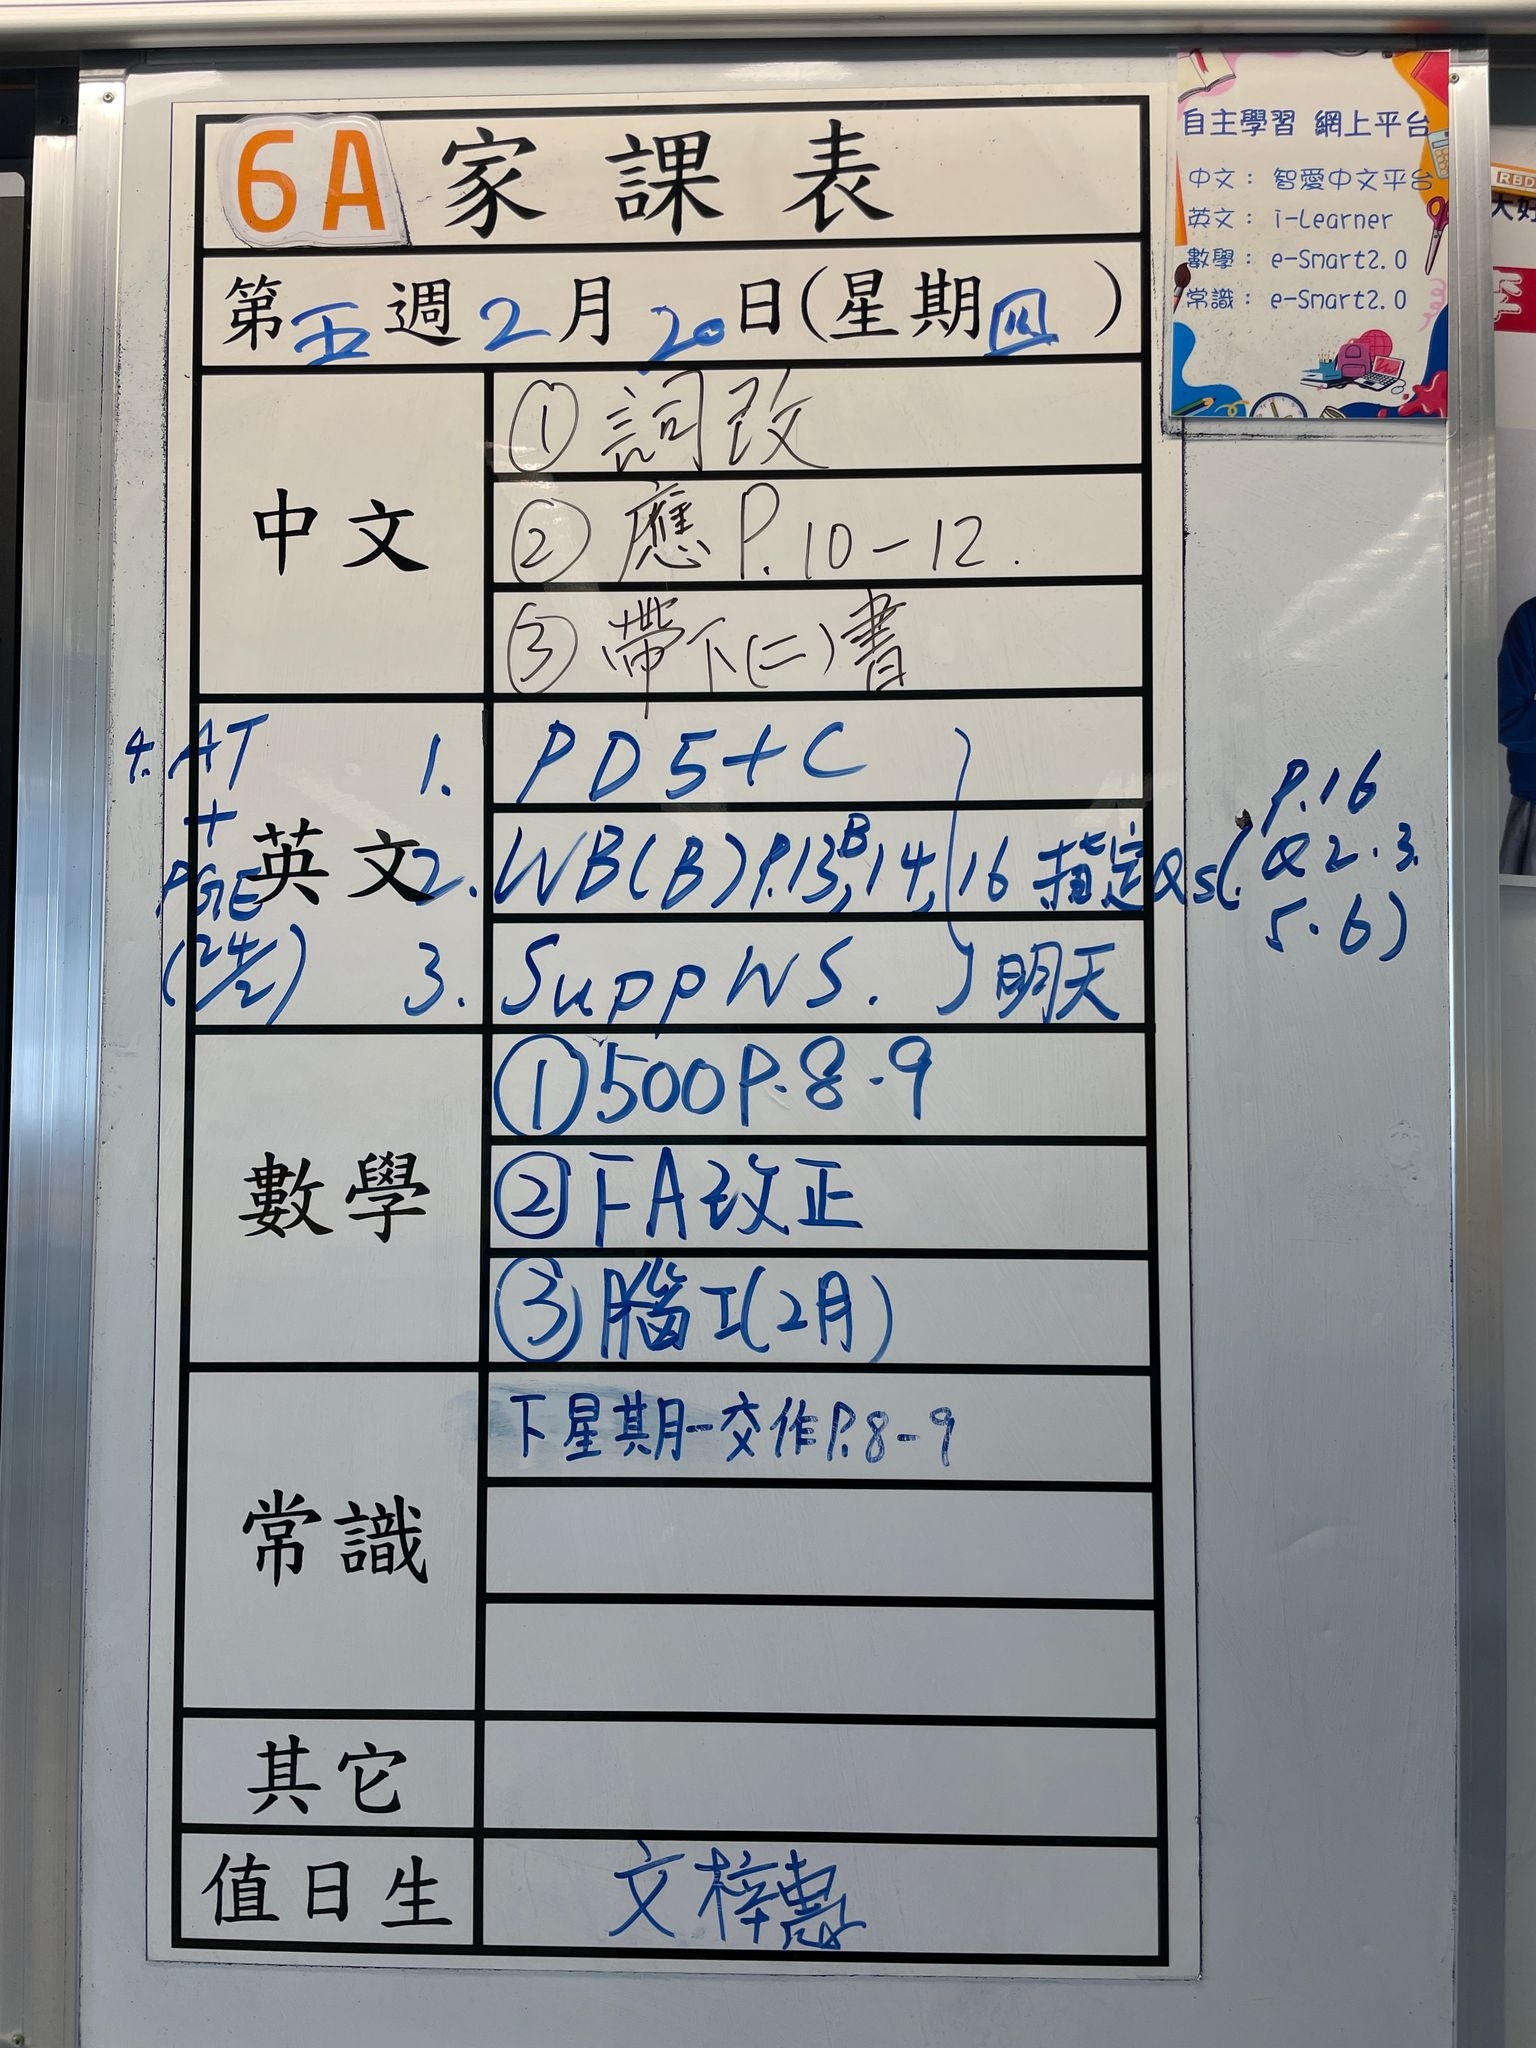 6A 家課表
第五週2月20日(星期四)
中文
① 詞改
② 應 P.10-12.
③ 帶下(二)書
英文
1. PD5+C
2. WB(B) P.13B, 14, 16 指定Qs(P.16
Q2.3.
5.6)
3. Supp WS. } 明天
4. AT
+
PGE
(24/2)
數學
① 500 P.8-9
② FA改正
③ 腦工(2月)
常識
下星期一交作P.8-9
其它
值日生
文梓
自主學習 網上平台
中文： 智愛中文平台
英文： i-Learner
數學： e-Smart2.0
常識： e-Smart2.0
RBD
大好